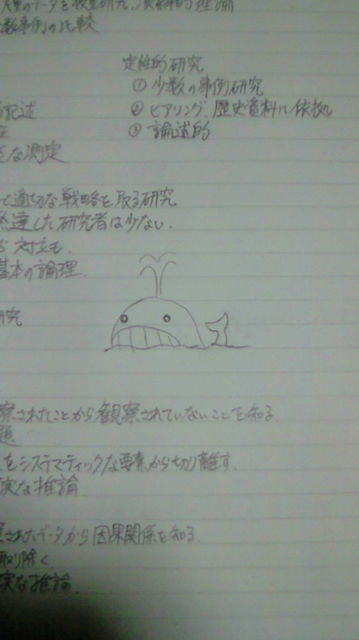 大量のデータを数量研究、演繹的推論
数事例の比較
定性的研究
① 少数の事例研究
② ヒアリング、歴史資料に依拠
③ 論述的
記述
な測定
て適切な戦略を取る研究
達した研究者は少ない.
対立も.
基本の論理.
研究
察されたことから観察されていないことを知る
題
をシステマティックな要素から切り離す.
実な推論
されたデータから因果関係を知る.
取り除く
実な推論.